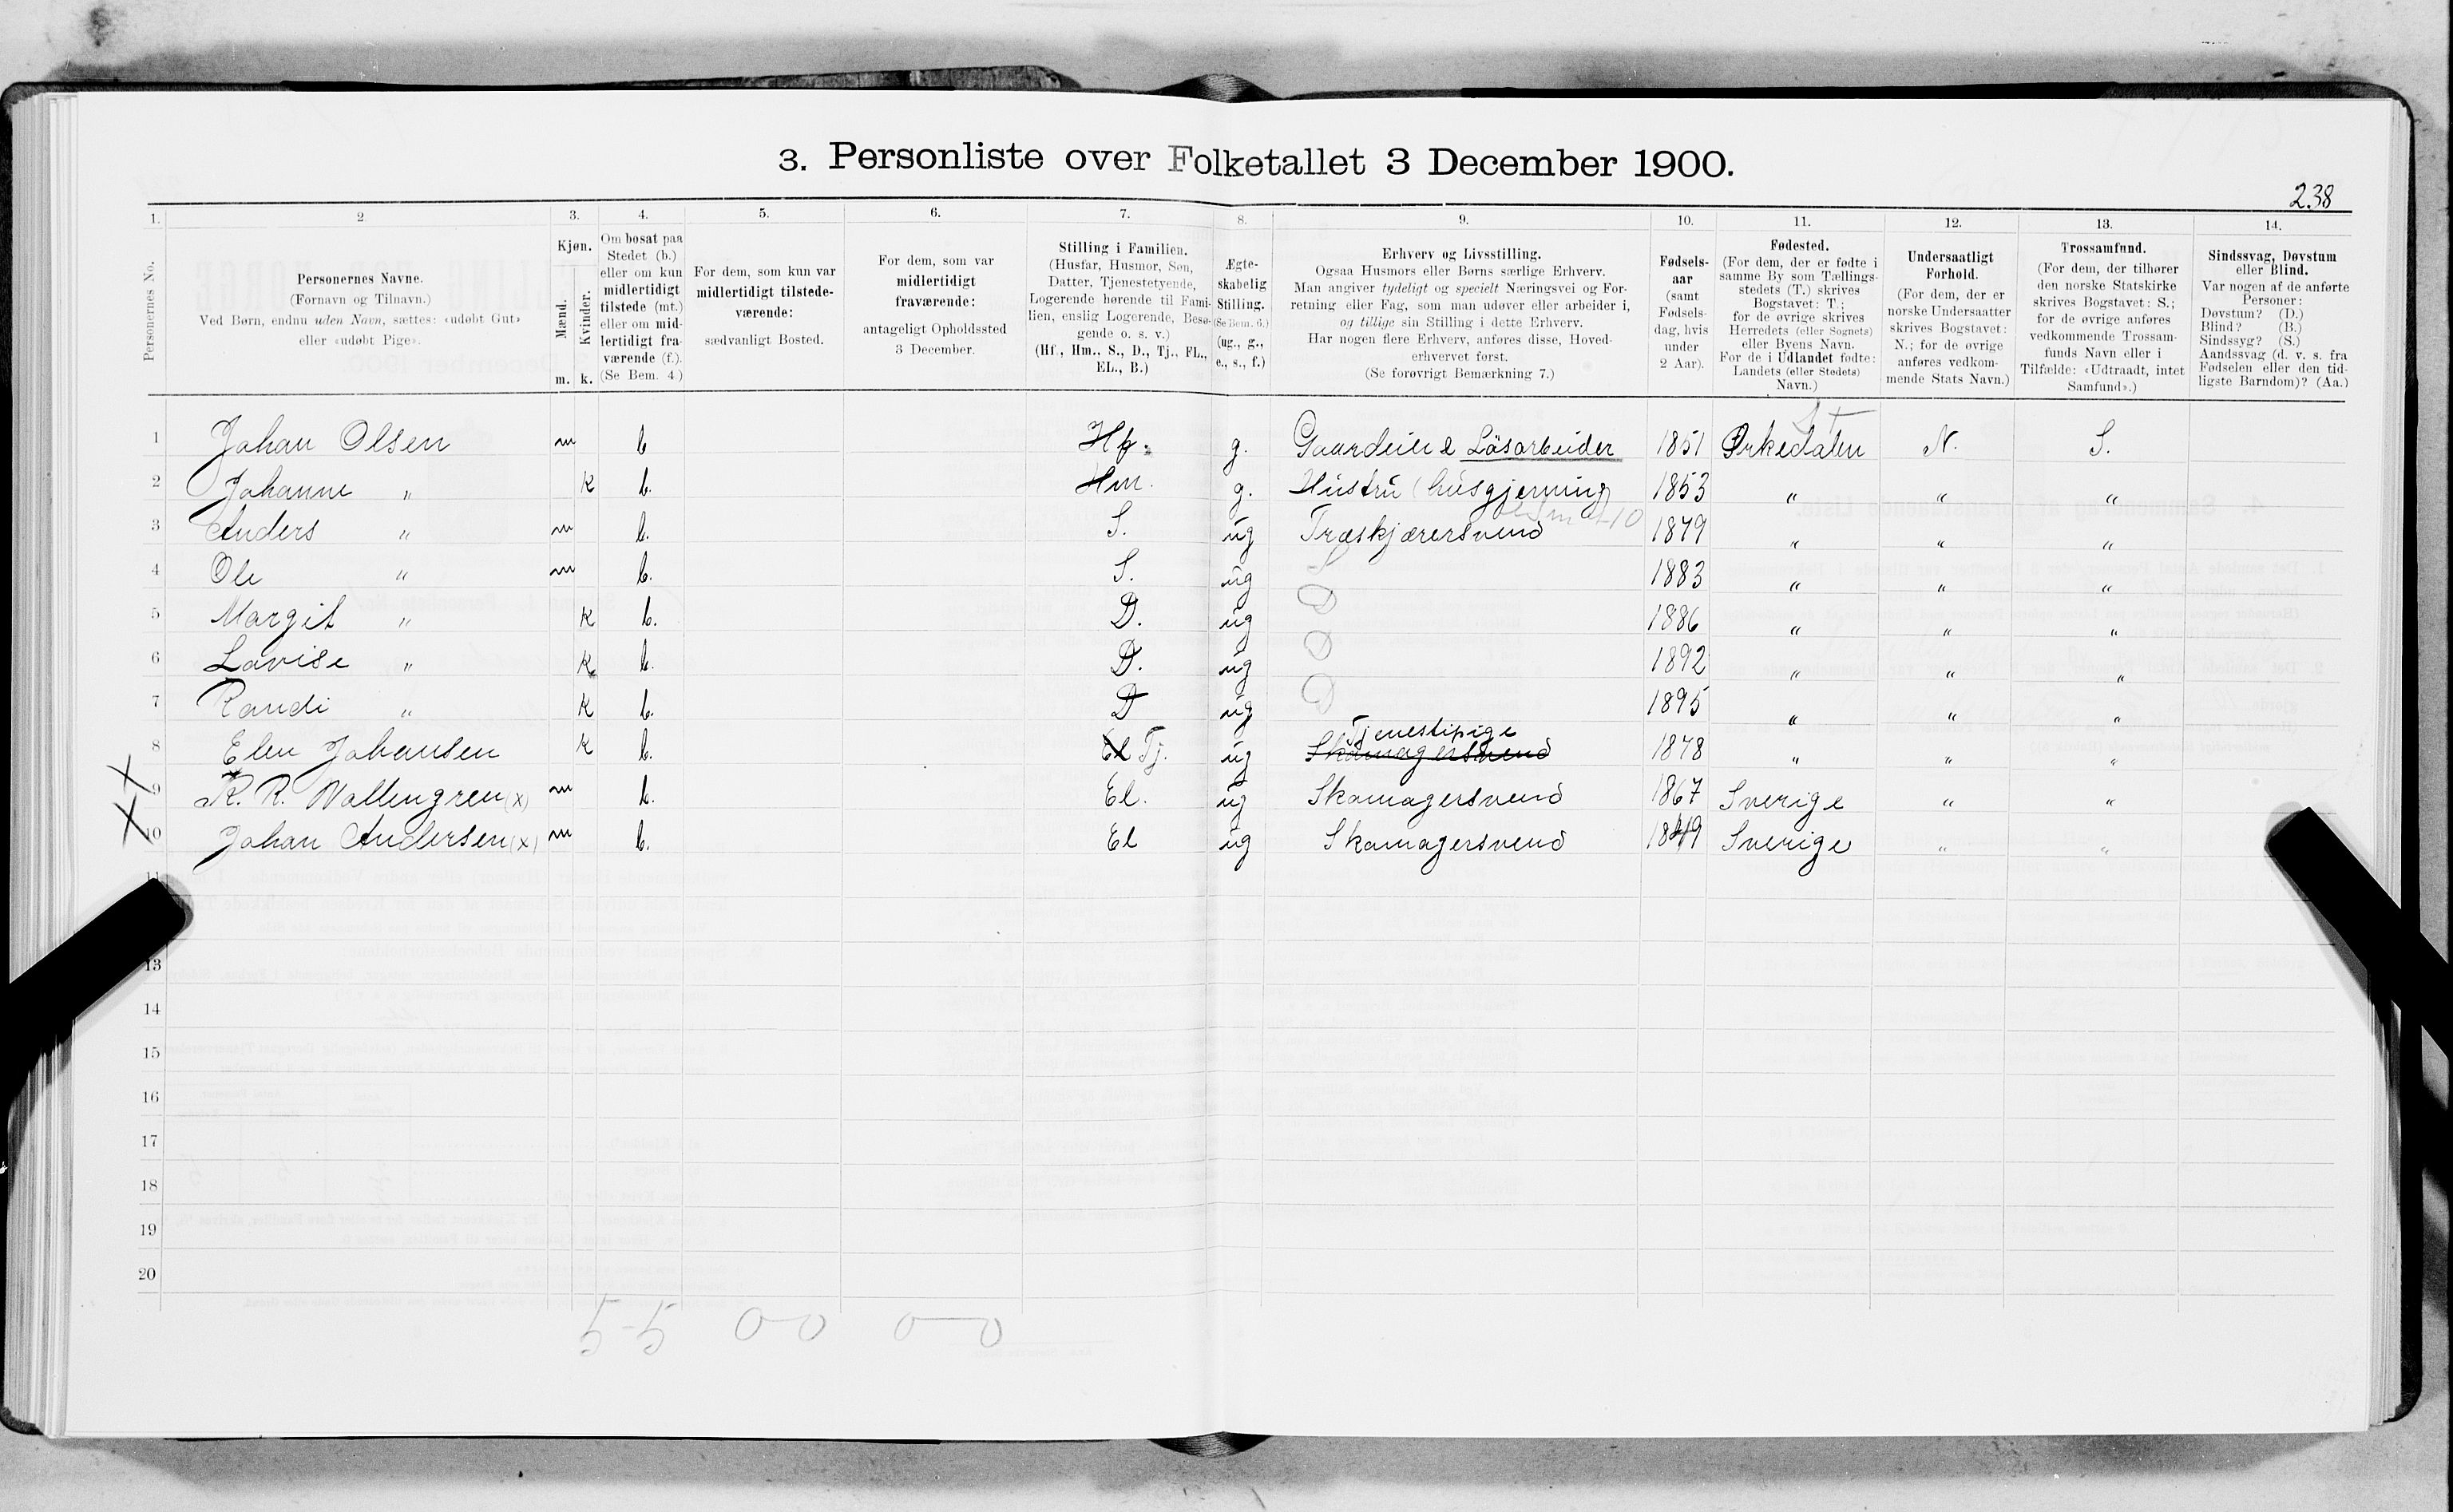 3. Personliste over Folketallet 3 December 1900.
238
1. 2 3. 4. 5. 6. 7. 8. 9. 10. 11. 12. 13. 14.
Personernes No.
Personernes Navne.
(Fornavn og Tilnavn.)
Ved Børn, endnu uden Navn, sættes: «udøbt Gut»
eller «udøbt Pige».
Kjøn.
Mænd.
Kvinder.
m. k.
Om bosat paa
Stedet (b.)
eller om kun
midlertidigt
tilstede (mt.)
eller om mid-
lertidigt fra-
værende (f.).
(Se Bem. 4.)
For dem, som kun var
midlertidigt tilstede-
værende:
sædvanligt Bosted.
For dem, som var
midlertidigt
fraværende:
antageligt Opholdssted
3 December.
Stilling i Familien.
(Husfar, Husmor, Søn,
Datter, Tjenestetyende,
Logerende hørende til Fami-
lien, enslig Logerende, Besø-
gende o. s. v.)
(Hf., Hm., S., D., Tj., FL.,
EL., B.)
Ægte-
skabelig
Stilling.
(Se Bem. 6.)
(ug., g.,
e., s., f.)
Erhverv og Livsstilling.
Ogsaa Husmors eller Børns særlige Erhverv.
Man angiver tydeligt og specielt Næringsvei og For-
retning eller Fag, som man udøver eller arbeider i,
og tillige sin Stilling i dette Erhverv.
Har nogen flere Erhverv, anføres disse, Hoved-
erhvervet først.
(Se forøvrigt Bemærkning 7.)
Fødsels-
aar
(samt
Fødsels-
dag, hvis
under
2 Aar).
Fødested.
(For dem, der er fødte i
samme By som Tællings-
stedets (T.) skrives
Bogstavet: T.;
for de øvrige skrives
Herredets (eller Sognets)
eller Byens Navn.
For de i Udlandet fødte:
Landets (eller Stedets)
Navn.)
Undersaatligt
Forhold.
(For dem, der er
norske Undersaatter
skrives Bogstavet:
N.; for de øvrige
anføres vedkom-
mende Stats Navn.)
Trossamfund.
(For dem, der tilhører
den norske Statskirke
skrives Bogstavet: S.;
for de øvrige anføres
vedkommende Trossam-
funds Navn eller i
Tilfælde: «Udtraadt, intet
Samfund».)
Sindssvag, Døvstum
eller Blind.
Var nogen af de anførte
Personer:
Døvstum? (D.)
Blind? (B.)
Sindssyg? (S.)
Aandssvag (d. v. s. fra
Fødselen eller den tid-
ligste Barndom)? (Aa.)
St
1 Johan Olsen m b Hf. g. Gaardeier & Løsarbeider 1851 Ørkedalen N. S.
2 Johanne " k b. Hm. g. Hustru (husgjerning) 1853 " " "
3 Anders " m b. S. ug Træskjærersvend 1879 " " "
4 Ole " m b. S. ug S 1883 " " "
5 Margit " k b. D. ug D 1886 " " "
6 Lovise " k b. D. ug D 1892 " " "
7 Randi " k b. D ug D 1895 " " "
Tjenestepige
8 Elen Johansen k b. El Tj. ug Skomagersvend 1878 " " "
9 K. R. Wallengren (x) m b. El. ug Skomagersvend 1867 Sverige " "
10 Johan Andersen (x) m b. El ug Skomagersvend 1849 Sverige " "
11
13
14
15
16
17
18
19
20
5-5 0 0 0-0